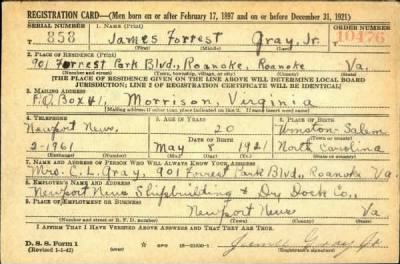 REGISTRATION CARD—(Men born on or after February 17, 1897 and on or before December 31, 1921)
SERIAL NUMBER 1. NAME (Print) ORDER NUMBER
S 858 James Forrest Gray, Jr. 10476
(First) (Middle) (Last)
2. PLACE OF RESIDENCE (Print)
901 Forrest Park Blvd., Roanoke, Roanoke Va.
(Number and street) (Town, township, village, or city) (County) (State)
[THE PLACE OF RESIDENCE GIVEN ON THE LINE ABOVE WILL DETERMINE LOCAL BOARD
JURISDICTION; LINE 2 OF REGISTRATION CERTIFICATE WILL BE IDENTICAL]
3. MAILING ADDRESS
P.O. Box 41, Morrison, Virginia
[Mailing address if other than place indicated on line 2. If same insert word same]
4. TELEPHONE 5. AGE IN YEARS 6. PLACE OF BIRTH
Newport News, 20 Winston-Salem
DATE OF BIRTH (Town or county)
2-1961 May 1921 North Carolina
(Exchange) (Number) (Mo.) (Day) (Yr.) (State or country)
7. NAME AND ADDRESS OF PERSON WHO WILL ALWAYS KNOW YOUR ADDRESS
Mrs. C. L. Gray, 901 Forrest Park Blvd., Roanoke Va.
8. EMPLOYER'S NAME AND ADDRESS
Newport News Shipbuilding & Dry Dock Co.,
9. PLACE OF EMPLOYMENT OR BUSINESS
Newport News Va.
(Number and street or R. F. D. number) (Town) (County) (State)
I AFFIRM THAT I HAVE VERIFIED ABOVE ANSWERS AND THAT THEY ARE TRUE.
D. S. S. Form 1
(Revised 1-1-42) (over) GPO 16—21630-1 James Gray Jr